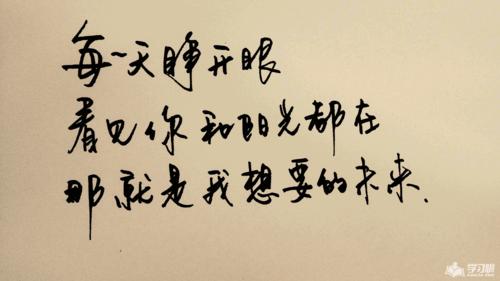 每一天睁开眼
看见你和阳光都在
那就是我想要的未来.
学习啦